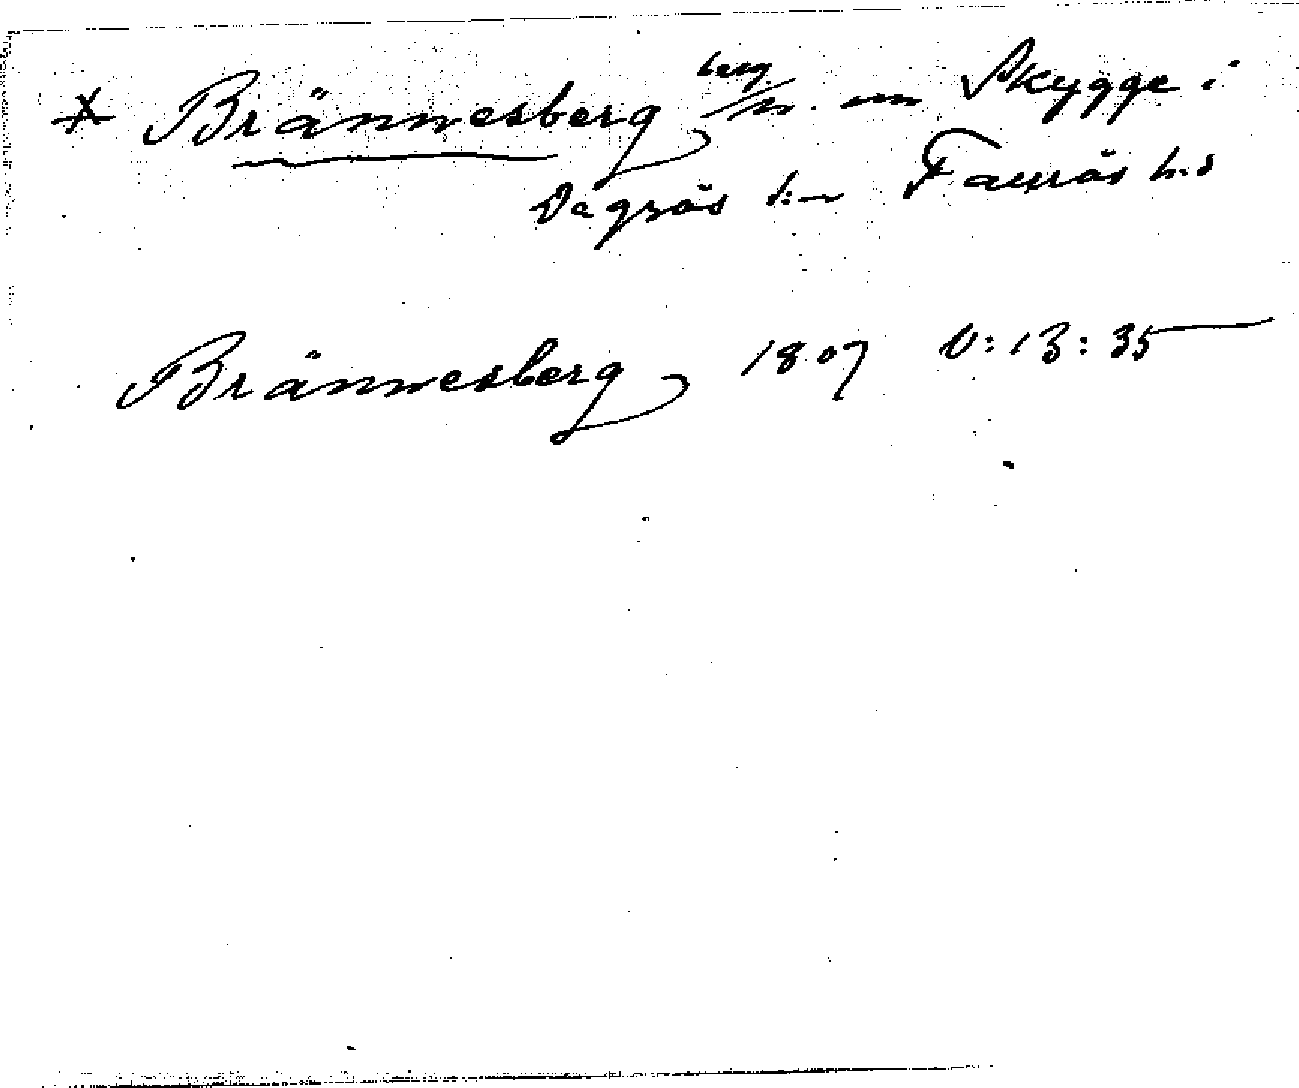 * Brännesberg berg/n. um Skygge i
Dagsås s:n Fauråş h.d
Brännesberg 1807 V:13:35